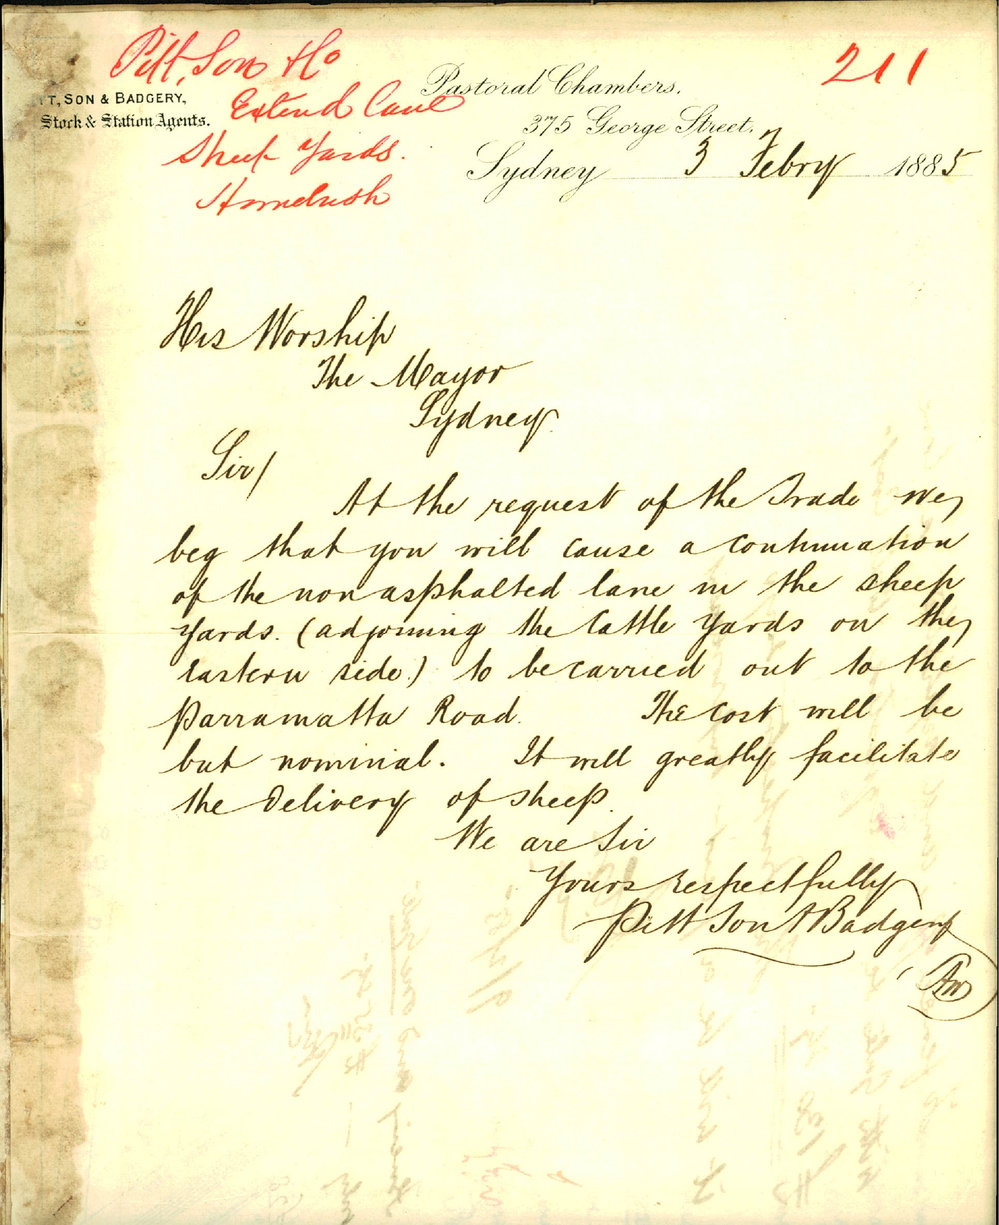 Pitt, Son & Co
211
T, SON & BADGERY,
Stock & Station Agents.
Pastoral Chambers.
Extend Lane
375 George Street.
Sheep Yards.
Sydney 3 Febry 1885
Homebush
His Worship
The Mayor
Sydney
Sir/
At the request of the Trade we
beg that you will cause a continuation
of the non asphalted lane in the sheep
yards. (adjoining the Cattle yards on the
Eastern side.) to be carried out to the
Parramatta Road. The cost will be
but nominal. It will greatly facilitate
the delivery of sheep.
We are Sir
Yours respectfully
Pitt Son & Badgery